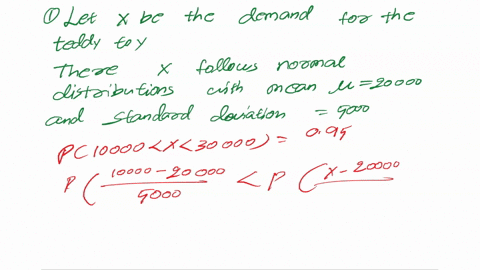 ① Let x be the demand for the
teddy toy
There x follows normal
distributions with mean μ = 20000
and standard deviation = 5000
P(10000 < x < 30000) = 0.95
P ( 10000 - 20000 / 5000 < P ( x - 20000